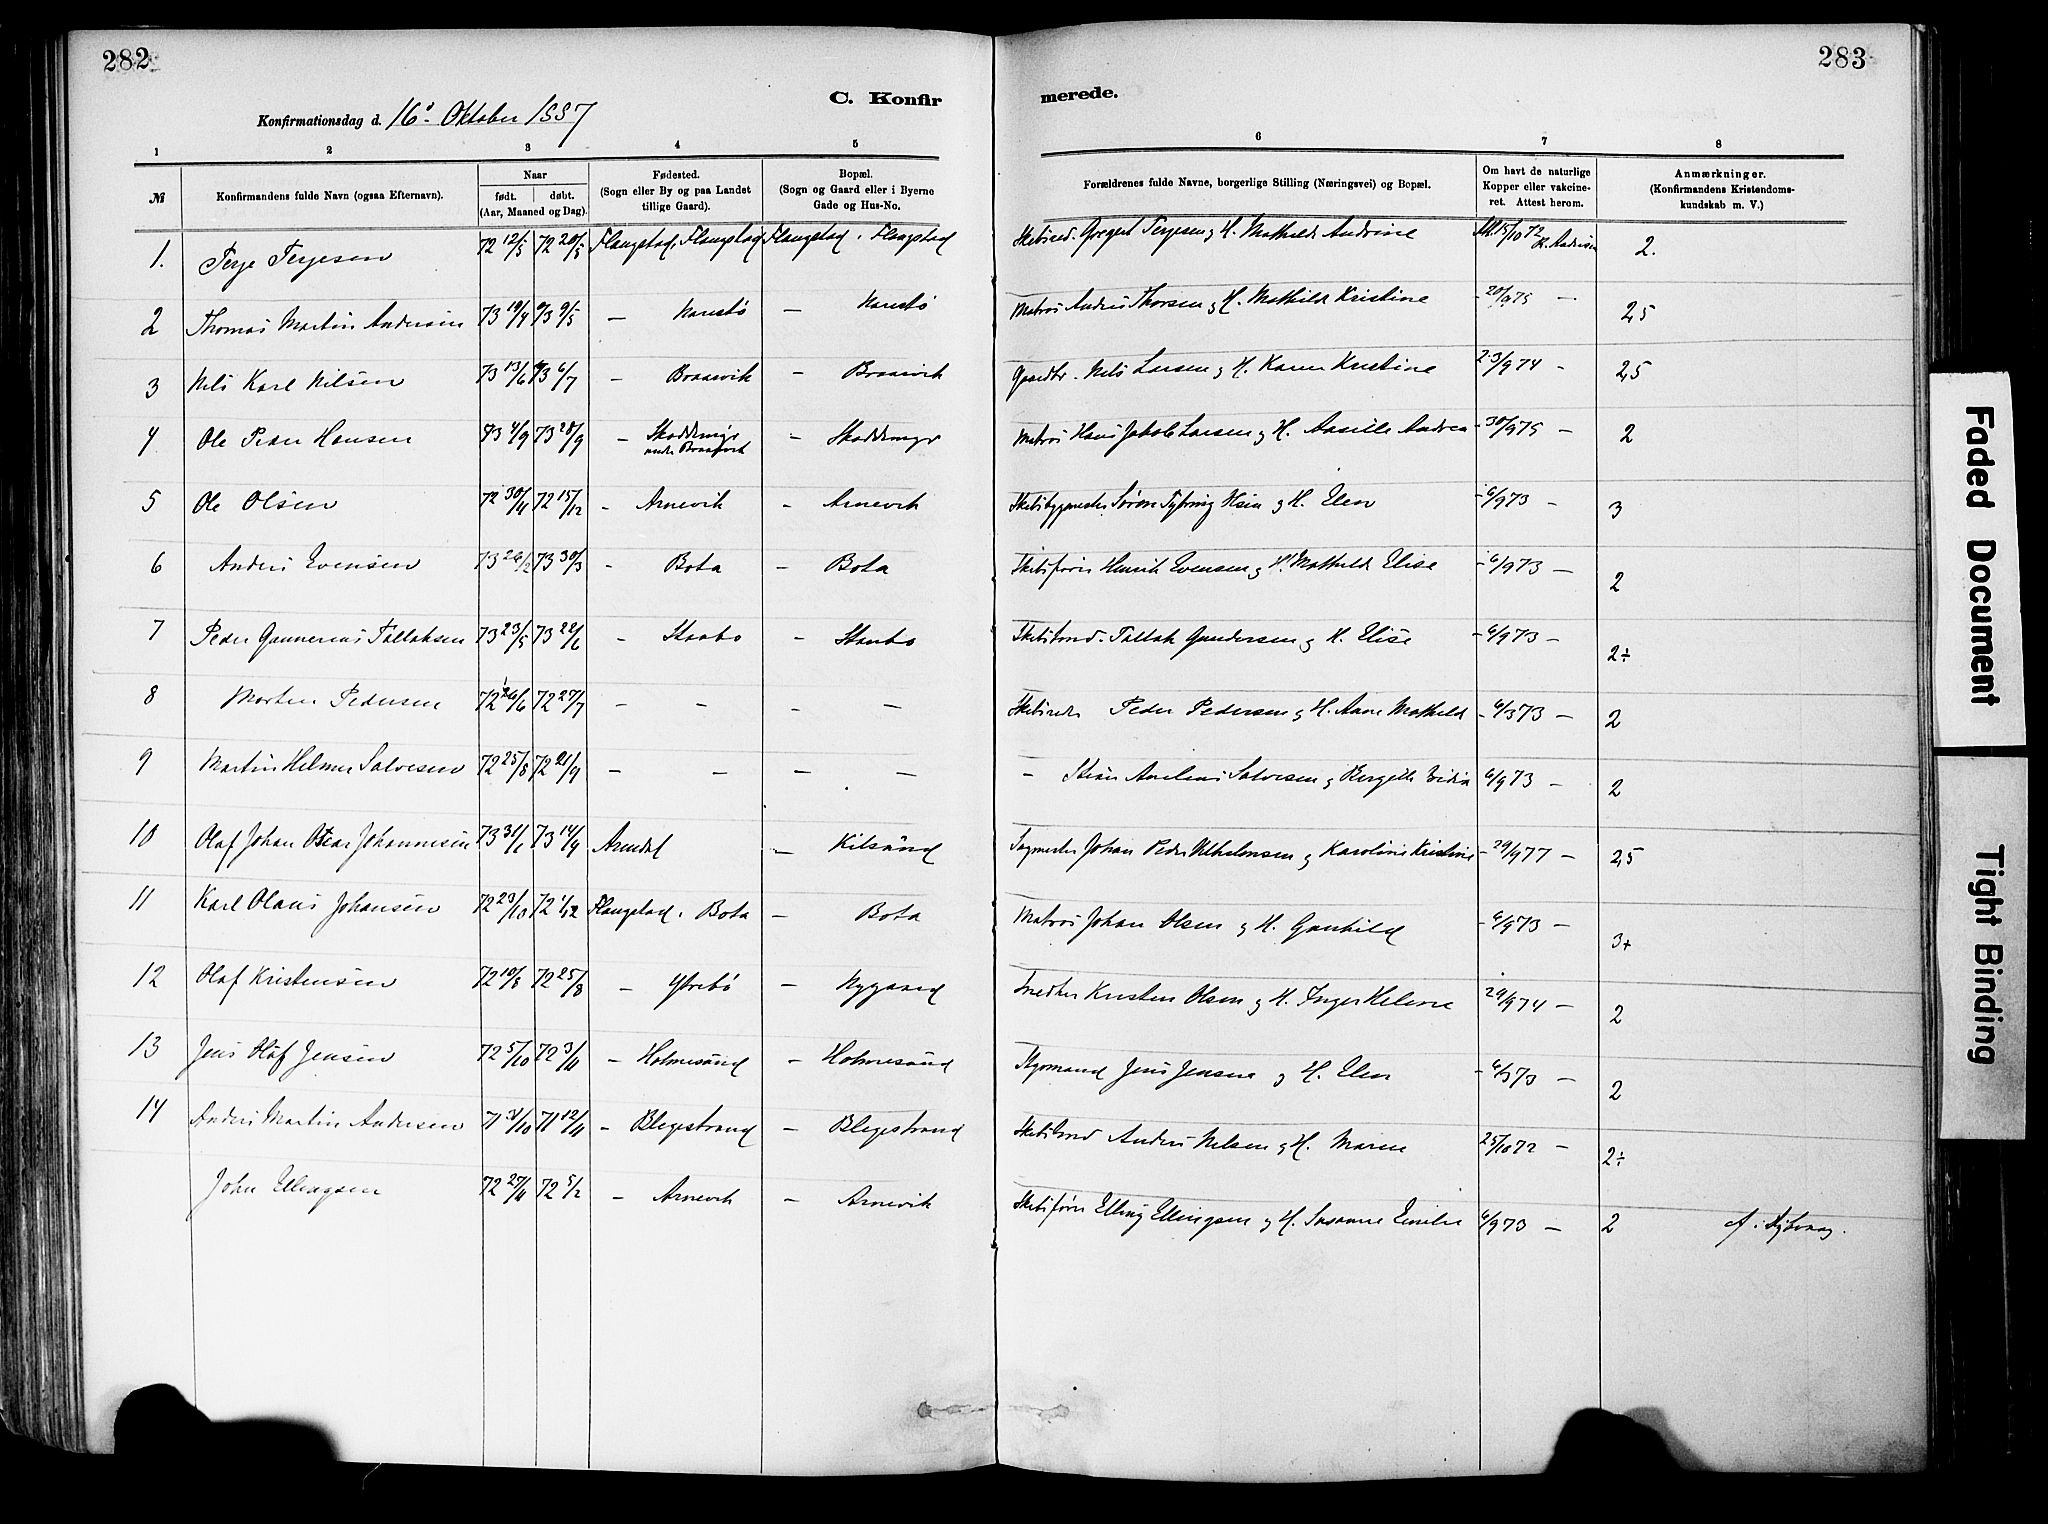 282
283
C. Konfirmerede.
Konfirmationsdag d. 16de Oktober 1887
1 2 3 4 5 6 7 8
№ Konfirmandens fulde Navn (ogsaa Efternavn). Naar født. døbt. (Aar, Maaned og Dag). Fødested. (Sogn eller By og paa Landet tillige Gaard). Bopæl. (Sogn og Gaard eller i Byerne Gade og Hus-No. Forældrenes fulde Navne, borgerlige Stilling (Næringsvei) og Bopæl. Om havt de naturlige Kopper eller vakcineret. Attest herom. Anmærkninger. (Konfirmandens Kristendomskundskab m. V.)
1. Terje Terjesen 72 12/5 72 20/5 Flangstad, Flangstad Flangstad, Flangstad Terjesen og H. Mathilde Andrine 15/10 72 2.
2 Thomas Martin Andersen 73 19/4 73 9/5 — Narestø — Narestø Matros Anders Thorsen og H. Mathilde Kristine - 20/9 75 — 2,5
3 Nils Karl Nilsen 73 13/6 73 6/7 — Braarvik — Braarvik Gaardbr. Nils Larsen og H. Karen Kristine 23/9 74 - 2,5
4 Ole Peder Hansen 73 4/9 73 28/9 — Skoddemyr under Braarvik — Skoddemyr Matros Hans Jakob Larsen og H. Aasille Andrea - 30/9 75 — 2
5 Ole Olsen 72 30/11 72 15/12 - Arnevik - Arnevik Skibsbygmester Søren og H. Elen - 6/9 73 — 3
6 Anders Evensen 73 26/2 73 30/3 - Bota — Bota Skibsfører Henrik Evensen og H. Mathilde Elise - 6/9 73 — 2
7 Peder Gunnerius Tallaksen 73 23/5 73 22/6 — Staubo — Staubo Skibstmd. Tallak Gundersen og H. Elise - 6/9 73 — 2÷
8 Morten Pedersen 72 26/6 72 27/7 — — — — Skibsreder Peder Pedersen og H. Anne Mathilde - 6/9 73 — 2
9 Martin Helmer Salvesen 72 25/8 72 21/9 — — — — - Salvesen og 6/9 73 — 2
10 Olaf Johan Oscar Johannesen 73 31/1 73 14/9 Arendal — Kilsund Johan Peder og Karoline Kristine - 29/9 77 — 2,5
11 Karl Olaus Johansen 72 23/10 72 1/12 Flangstad, Bota — Bota Matros Johan Olsen og H. Gunhild - 6/9 73 — 3+
12 Olaf Kristensen 72 10/8 72 25/8 — Ytrebø — Nygaard Snedker Kristen Olsen og H. Inger Helene 29/9 74 — 2
13 Jens Olaf Jensen 72 5/10 72 3/11 — Holmesund — Holmesund Styrmand Jens Jensen og H. Elen - 6/9 73 — 2
14 Anders Martin Andersen 71 3/10 71 12/11 — Blegestrand — Blegestrand Skibstmd Anders Nilsen og H. Maren 25/10 72 — 2÷
John Ellingsen 72 27/11 72 5/12 — Arnevik — Arnevik Skibsfører Elling Ellingsen og H. Susanne Emilie 6/9 73 — 2
Faded Document
Tight Binding